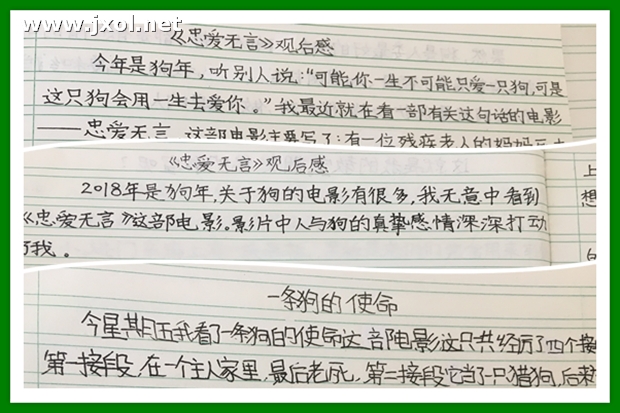 www.jxol.net
《忠爱无言》观后感
今年是狗年，听别人说：“可能，你一生不可能只爱一只狗，可是
这只狗会用一生去爱你。”我最近就在看一部有关这句话的电影
——忠爱无言，这部电影主要写了：有一位残疾老人的妈妈
《忠爱无言》观后感
2018年是狗年，关于狗的电影有很多，我无意中看到
《忠爱无言》这部电影。影片中人与狗的真挚感情深深打动
我。
上
想
一条狗的使命
今星期五我看了一条狗的使命这部电影这只共经历了四个接
第一接段，在一个主人家里，最后老死，第二接段它当了一只猎狗，后来